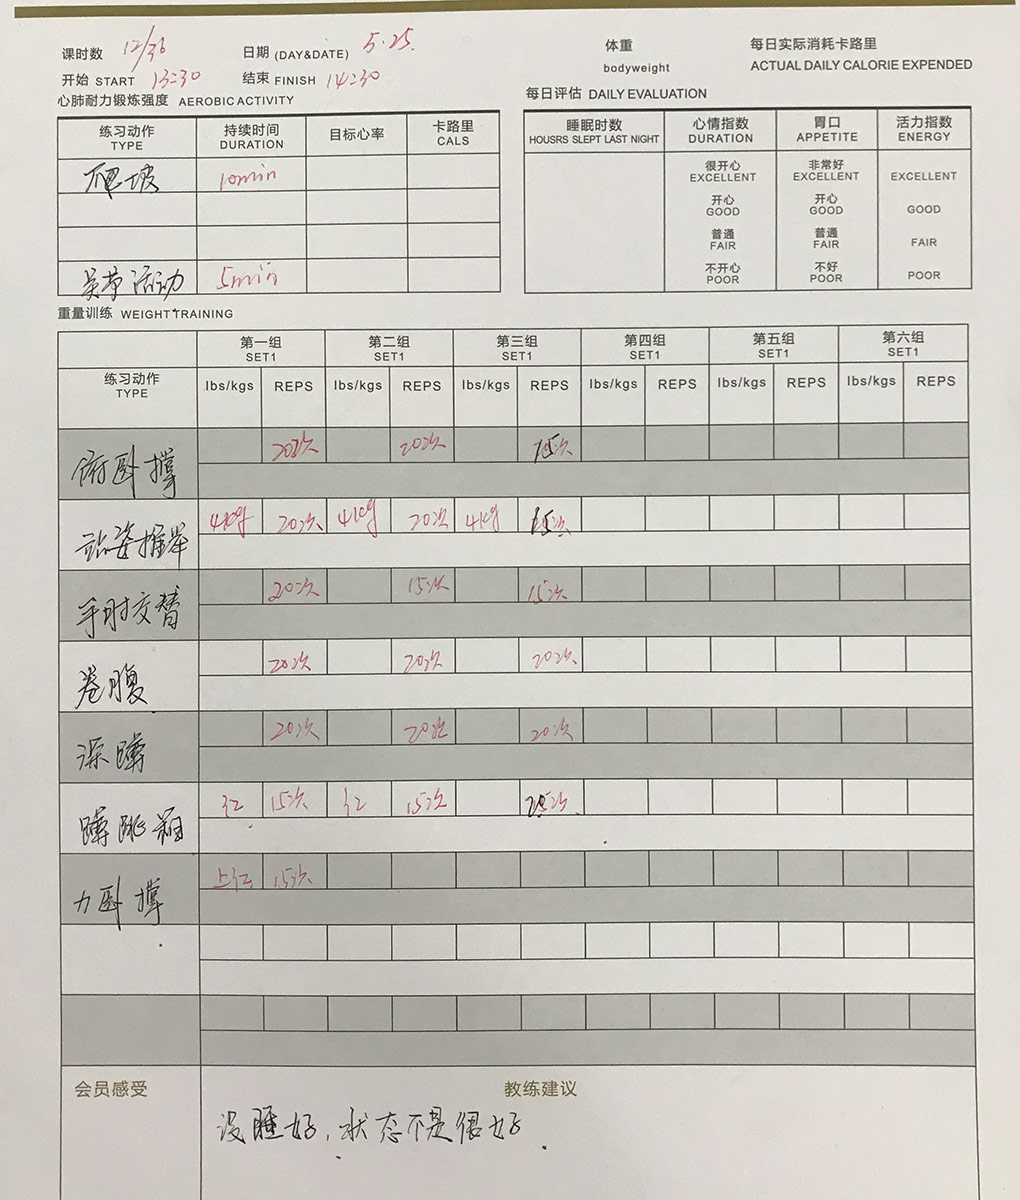 课时数 12/36 日期 (DAY&DATE) 5.25. 体重 bodyweight 每日实际消耗卡路里 ACTUAL DAILY CALORIE EXPENDED
开始 START 13:30 结束 FINISH 14:30
心肺耐力锻炼强度 AEROBIC ACTIVITY
练习动作 TYPE 持续时间 DURATION 目标心率 卡路里 CALS
爬坡 10min
肩带活动 5min
每日评估 DAILY EVALUATION
睡眠时数 HOUSRS SLEPT LAST NIGHT 心情指数 DURATION 胃口 APPETITE 活力指数 ENERGY
很开心 EXCELLENT 非常好 EXCELLENT EXCELLENT
开心 GOOD 开心 GOOD GOOD
普通 FAIR 普通 FAIR FAIR
不开心 POOR 不好 POOR POOR
重量训练 WEIGHT TRAINING
第一组 SET1 第二组 SET1 第三组 SET1 第四组 SET1 第五组 SET1 第六组 SET1
练习动作 TYPE lbs/kgs REPS lbs/kgs REPS lbs/kgs REPS lbs/kgs REPS lbs/kgs REPS lbs/kgs REPS
俯卧撑 20次 20次 15次
站姿推举 4kg 20次 4kg 20次 4kg 15次
手肘交替 20次 15次 15次
卷腹 20次 20次 20次
深蹲 20次 20次 20次
蹲跳箱 红 15次 红 15次
力卧撑 上红 15次
会员感受 教练建议
没睡好,状态不是很好.